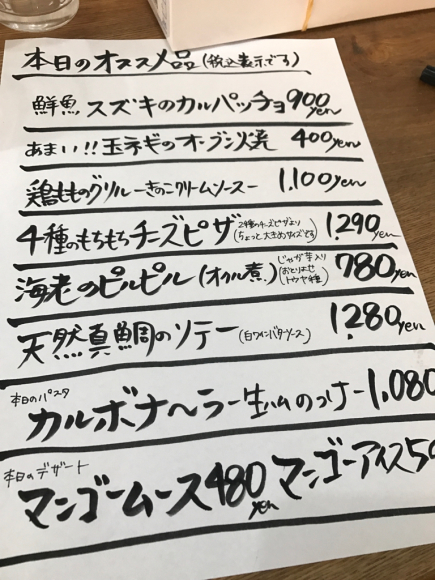 本日のオススメ品(税込表示です)
鮮魚 スズキのカルパッチョ 900yen
あまい!!玉ネギのオーブン焼 400yen
鶏もものグリルーきのこクリームソースー 1,100yen
4種のもちもちチーズピザ(2種のチーズピザより ちょっと大きめサイズです) 1,290yen
海老のピルピル(オイル煮)(じゃが芋入り おとりよせ トウヤ種) 780yen
天然真鯛のソテー(白ワインバターソース) 1,280yen
本日のパスタ
カルボナーラー生ハムのっけー1,080
本日のデザート
マンゴームース480yen マンゴーアイス5